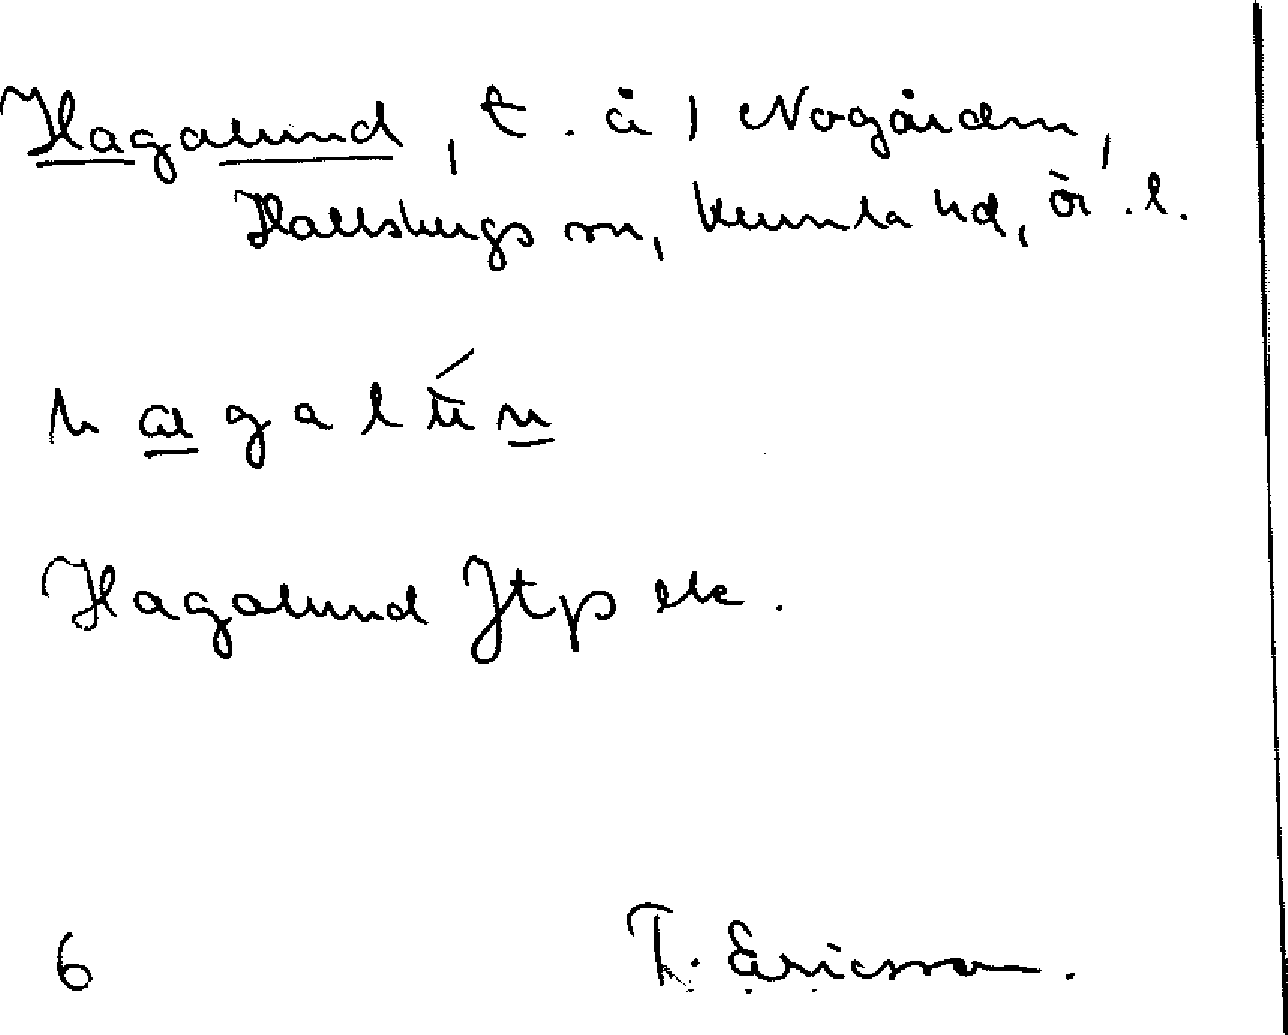 Hagalund, t. å 1 Nogården,
Hallsbergs sn, Kumla hd, Ör. l.
hagalún
Hagalund Jtp etc.
6
T. Ericsson.